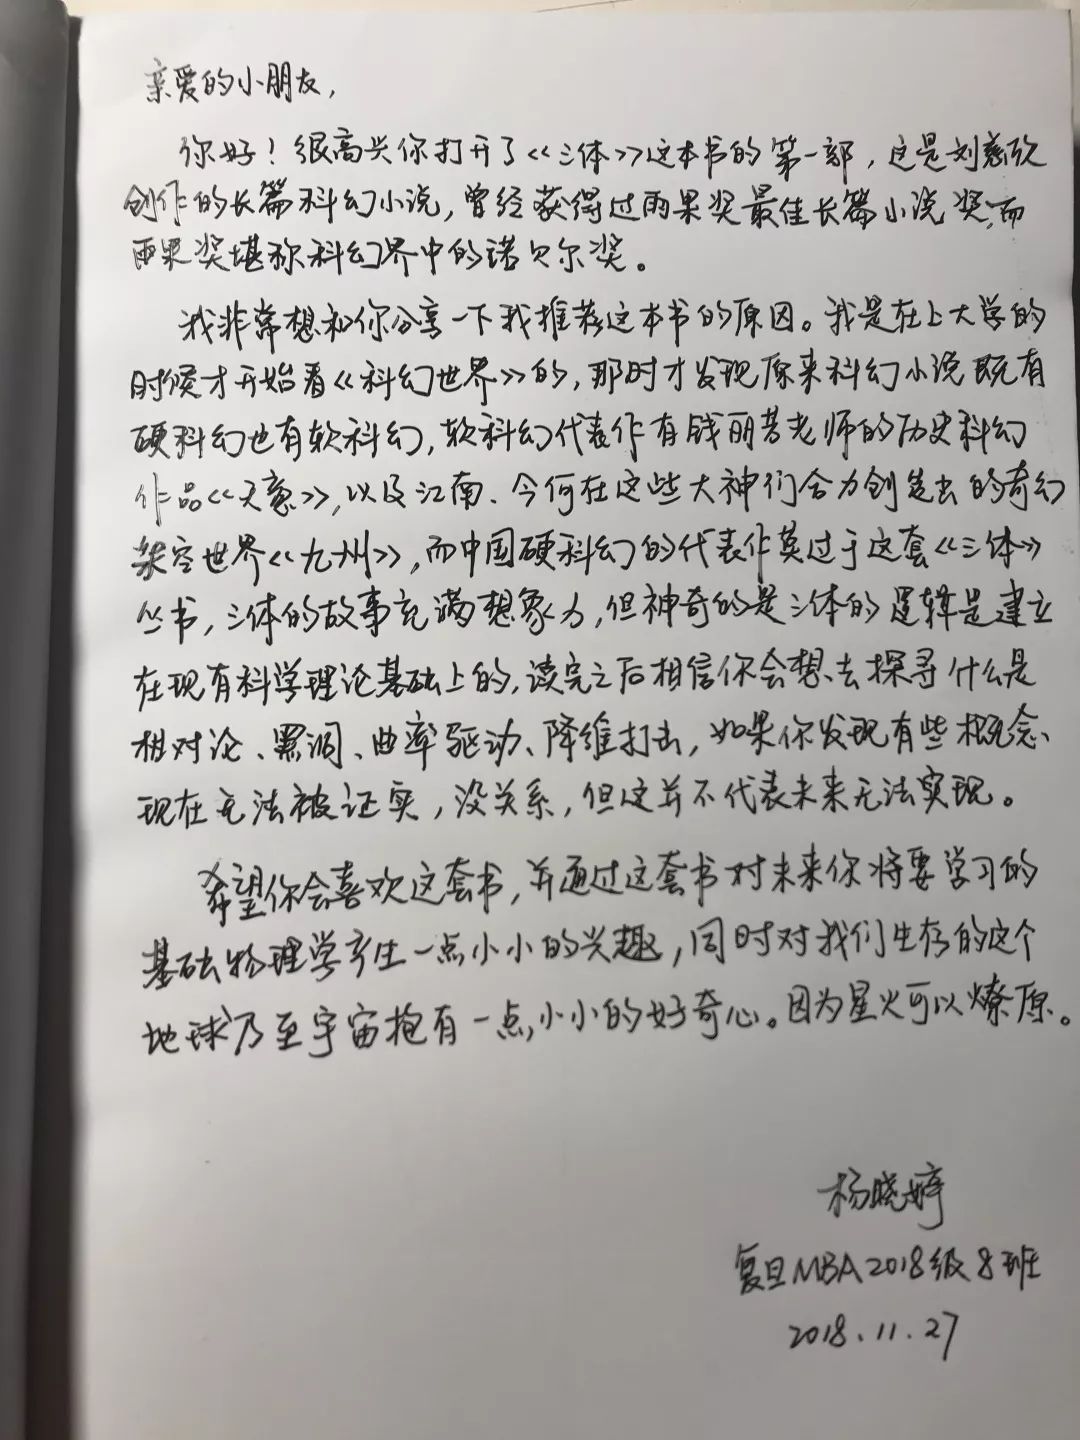 亲爱的小朋友,
你好！很高兴你打开了《三体》这本书的第一部，这是刘慈欣
创作的长篇科幻小说，曾经获得过雨果奖最佳长篇小说奖，而
雨果奖堪称科幻界中的诺贝尔奖。
我非常想和你分享一下我推荐这本书的原因。我是在上大学的
时候才开始看《科幻世界》的，那时才发现原来科幻小说既有
硬科幻也有软科幻，软科幻代表作有钱丽芳老师的历史科幻
作品《天意》，以及江南、今何在这些大神们合力创造出的奇幻
架空世界《九州》，而中国硬科幻的代表作莫过于这套《三体》
丛书，三体的故事充满想象力，但神奇的是三体的逻辑是建立
在现有科学理论基础上的，读完之后相信你会想去探寻什么是
相对论、黑洞、曲率驱动、降维打击，如果你发现有些概念
现在无法被证实，没关系，但这并不代表未来无法实现。
希望你会喜欢这套书，并通过这套书对未来你将要学习的
基础物理学产生一点小小的兴趣，同时对我们生存的这个
地球乃至宇宙抱有一点小小的好奇心。因为星火可以燎原。
杨晓婷
复旦MBA2018级8班
2018.11.27